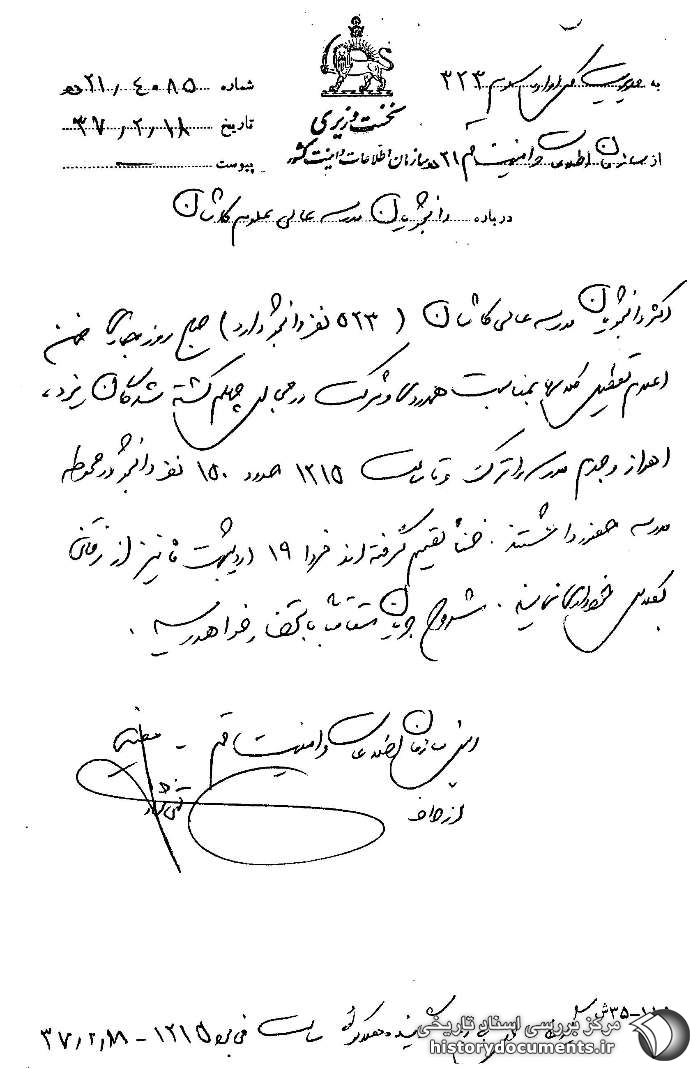 نخست وزیری
سازمان اطلاعات و امنیت کشور
به مدیریت کل اداره سوم ۳۲۳
از سازمان اطلاعات و امنیت قم ۲۱ ه
شماره ۴۰۸۵/۲۱ ه
تاریخ ۳۷/۲/۱۸
پیوست —
درباره دانشجویان مدرسه عالی علوم کاشان
اکثر دانشجویان مدرسه عالی کاشان (۵۲۳ نفر دانشجو دارد) صبح روز جاری ضمن
اعلام تعطیل کلاسها بمناسبت همدردی و شرکت در مجالس چهلم کشته شدگان یزد،
اهواز و جهرم مدرسه را ترک و تا ساعت ۱۲۱۵ حدود ۱۵۰ نفر دانشجو در محوطه
مدرسه حضور داشتند. ضمناً تصمیم گرفته اند فردا ۱۹ اردیبهشت ماه نیز از رفتن
بکلاس خودداری نمایند. مشروح جریان متعاقباً باستحضار خواهد رسید.
رئیس سازمان اطلاعات و امنیت قم -
از طرف
۳۵-۱۱۰ش
ساعت ۱۲۱۵ - ۳۷/۲/۱۸
مرکز بررسی اسناد تاریخی
historydocuments.ir